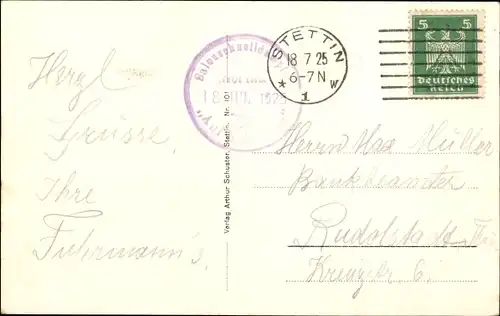 Herzl.
Grüsse,
Ihre
Fuhrmann's,
STETTIN
18 7 25
6-7 N
* 1 w
5 5
Deutsches
Reich
Verlag Arthur Schuster, Stettin. Nr. 101
Herrn Max Müller
Bankbeamter
Rudolstadt
Kreuzstr. 6.